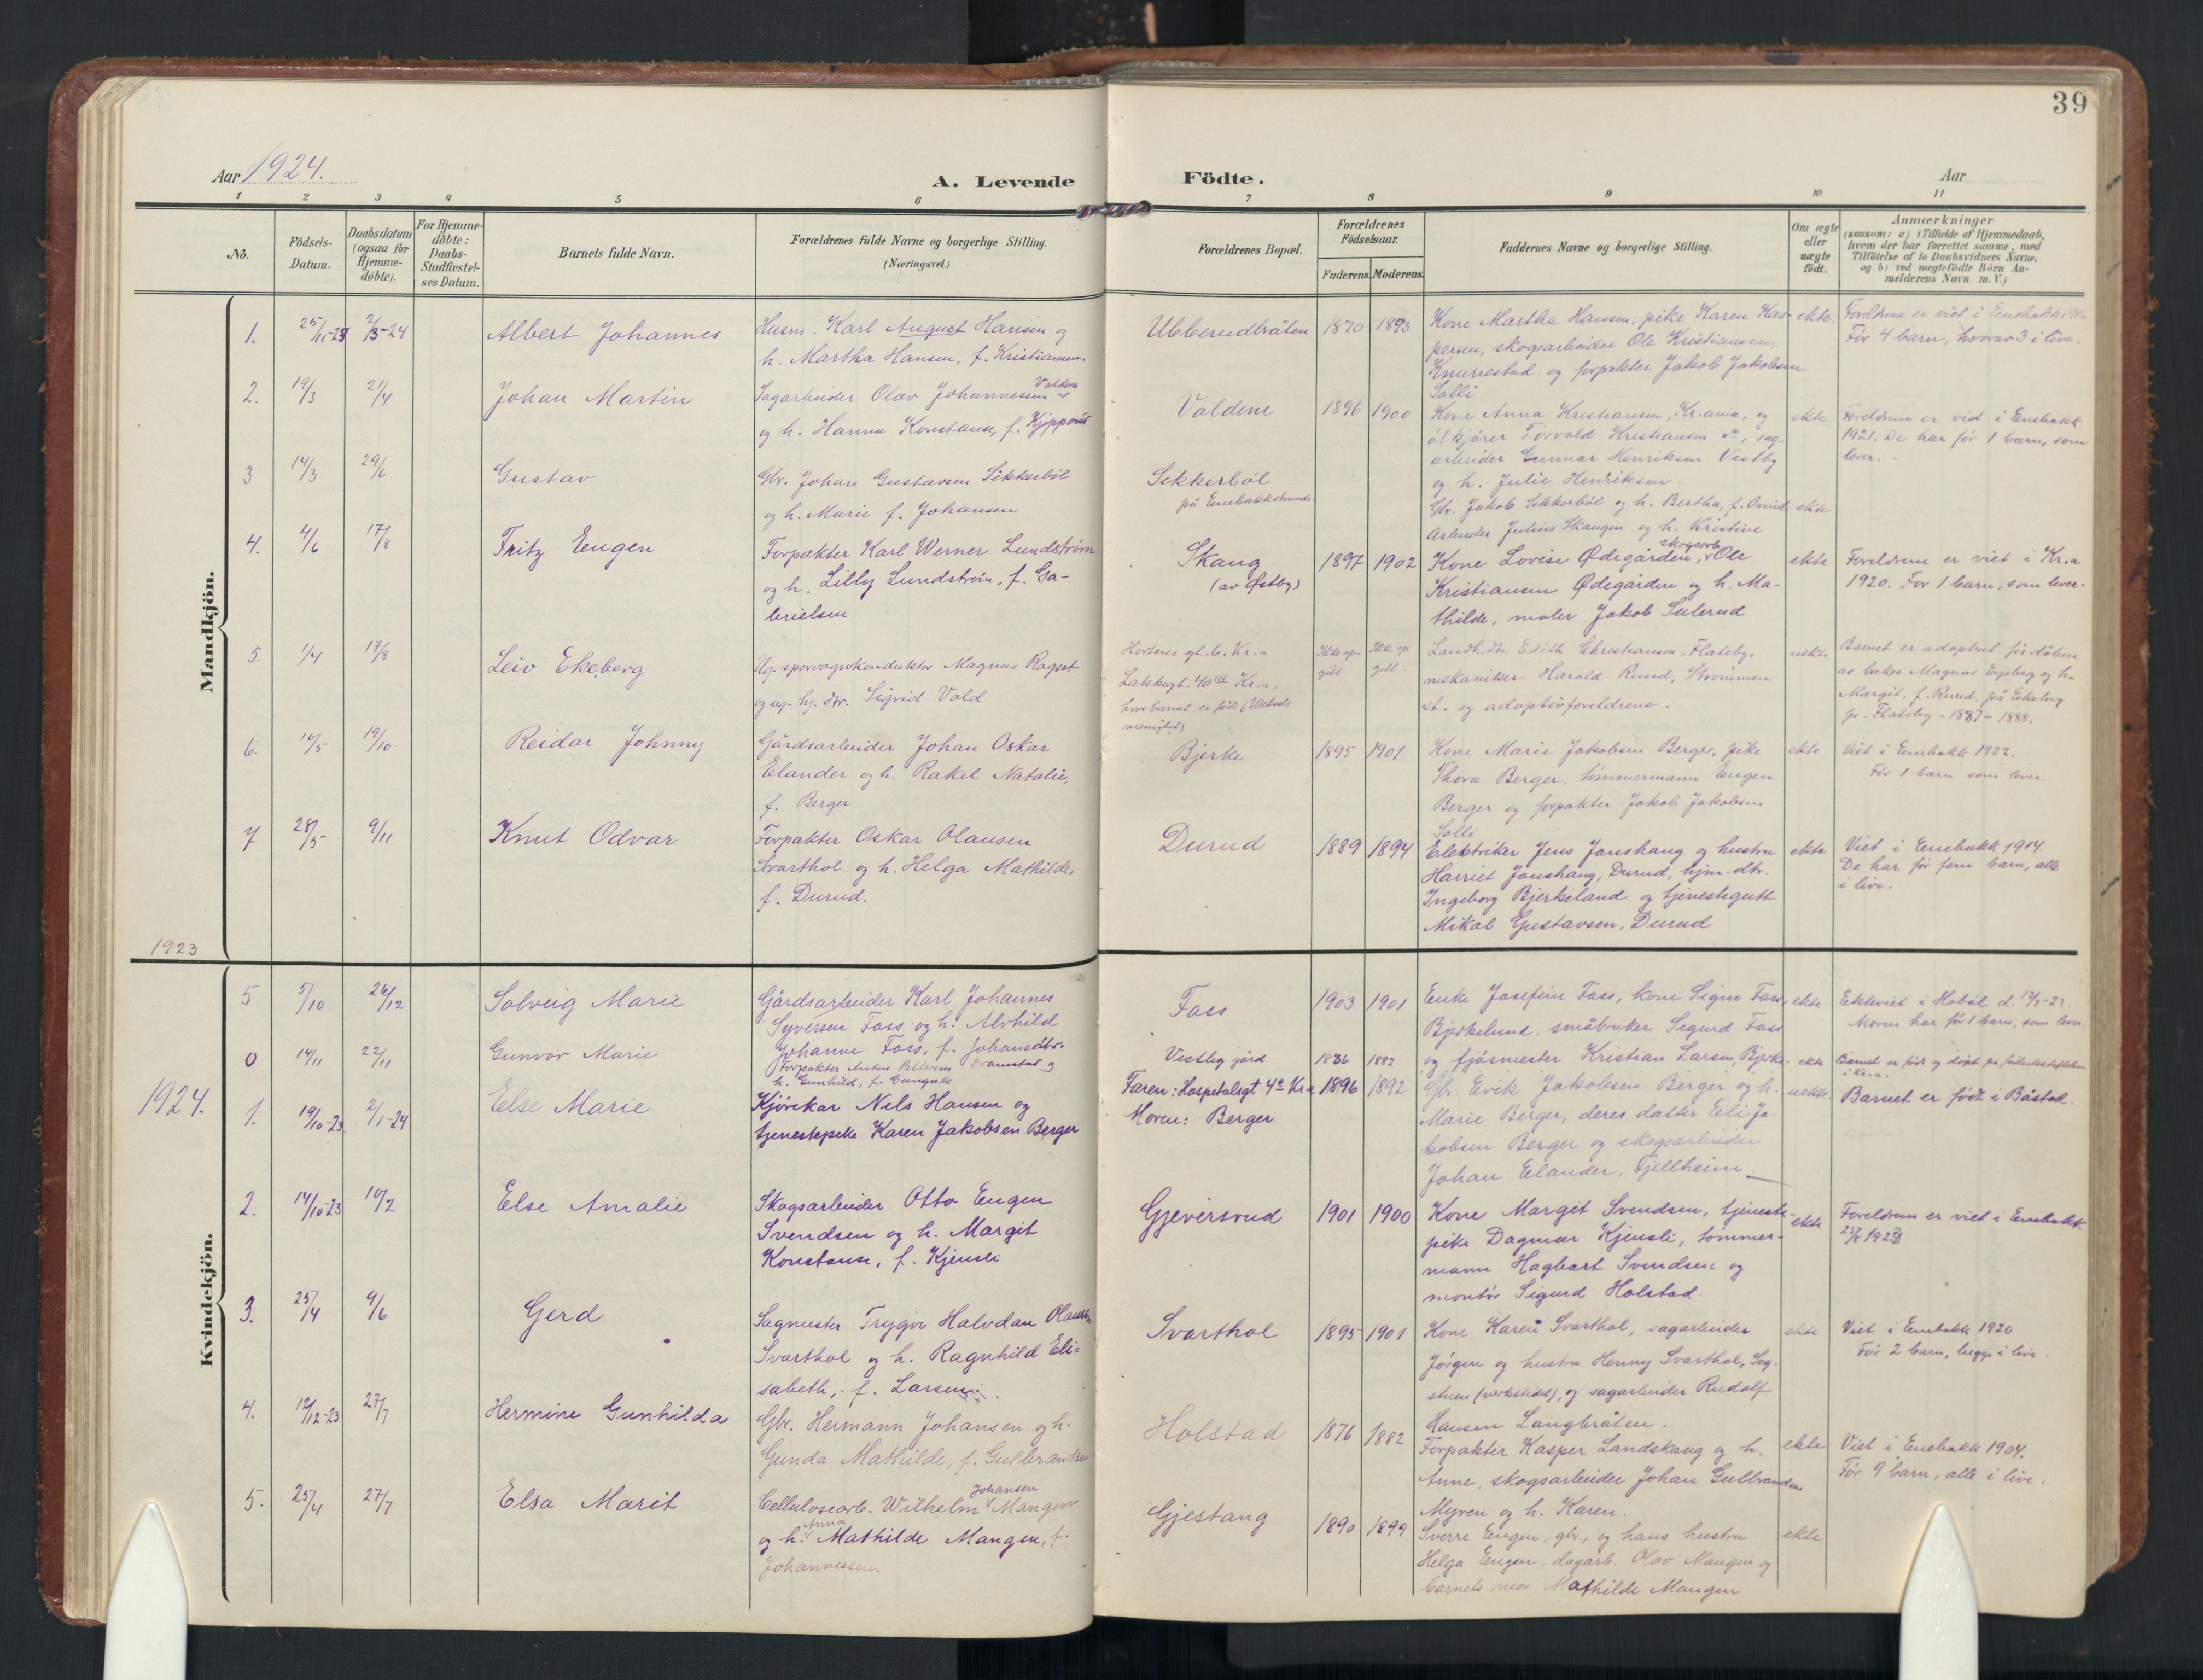 39
Aar 1924.
A. Levende
Födte.
Aar
1 2 3 4 5 6 7 8 9 10 11
No.
Födsels-
Datum.
Daabsdatum
(ogsaa for
Hjemme-
döbte).
For Hjemme-
döbte:
Daabs-
Stadfæstel-
ses Datum.
Barnets fulde Navn.
Forældrenes fulde Navne og borgerlige Stilling.
(Næringsvei.)
Forældrenes Bopæl.
Forældrenes
Födselsaar.
Faderens. Moderens.
Faddernes Navne og borgerlige Stilling.
Om ægte
eller
uægte
födt.
Anmærkninger
(saasom: a) i Tilfælde af Hjemmedaab,
hvem der har forrettet samme, med
Tilföielse af to Daabsvidners Navne,
og b) ved uægtefödte Börn An-
melderens Navn m. V.)
Mandkjön.
1. 25/11-23 2/3-24
Albert Johannes
Husm. Karl August Hansen og
h. Martha Hansen, f. Kristiansen.
Ubberudbråten
1870 1893
Kone Martha Hansen, pike Karen Kas-
persen, skogsarbeider Ole Kristiansen,
Knurrestad og forpakter Jakob Jakobsen
Solli
ekte.
Foreldrene er viet i Enebakk
Før 4 barn, hvorav 3 i live.
2. 19/3 21/4
Johan Martin
Sagarbeider Olav Johannessen Valdene
og h. Hanna Konstanse, f.
Valdene
1896 1900
Kone Anna Kristiansen, Kr.ania, og
ølkjører Torvald Kristiansen, sag-
arbeider Gunnar Henriksen Vestby
og h. Julie Henriksen.
ekte
Foreldrene er vid i Enebakk
1921. De har før 1 barn, som
lever. -
3 14/3 29/6
Gustav
Gbr. Johan Gustavsen Sikkerbøl
og h. Marie f. Johansen
Sikkerbøl
på Enebakkstranda
Gbr. Jakob Sikkerbøl og h. Bertha,
Arbeider Julius Skaugen og h. Kristine
ekte
4. 4/6 17/8
Fritz Eugen
Forpakter Karl Werner Lundstrøm
og h. Lilly Lundstrøm, f. Ga-
brielsen
Skaug
(av Østby)
1897 1902
Kone Lovise Ødegården, skogsarb. Ole
Kristiansen Ødegården og h. Ma-
thilde, maler Jakob Sulerud
ekte
Foreldrene er viet i Kr.a
1920. Før 1 barn, som lever.
5. 1/4 17/8
Leiv Ekeberg
Ug. sporvognskonduktør Magnus Ragset
og ug. hj. dtr. Sigrid Vold
Hortens gt. 6. Kr.a
Lakkegt. 40 III Kr.a.
hvor barnet er født (Wexels
menighet)
Ikke op-
gitt
Ikke op
gitt
Landh. dtr. Edith Christiansen, Flateby,
mekaniker Harald Ruud, Strømmen
st. og adoptivforeldrene.
uekte
Barnet er adoptert før dåben
av baker Magnus Engeberg og h.
Margit, f. Ruud på Ekeberg
pr. Flateby - 1887 - 1888.
6. 14/5 19/10
Reidar Johnny
Gårdsarbeider Johan Oskar
Elander og h. Rakel Natalie,
f. Berger
Bjerke
1895 1901
Kone Marie Jakobsen Berger, pike
Thora Berger, tømmermann Eugen
Berger og forpakter Jakob Jakobsen
Solli
ekte
Viet i Enebakk 1922.
Før 1 barn som lever.
7 28/5 9/11
Knut Odvar
Forpakter Oskar Olausen
Svarthol og h. Helga Mathilde,
f. Durud.
Durud
1889 1894
Elektriker Jens Jonshaug og hustru
Harriet Jonshaug, Durud, hjm. dtr.
Ingeborg Bjerkeland og tjenestegutt
Mikal Gustavsen, Durud
ekte
Viet i Enebakk 1914.
De har før fem barn, alle
i live.
1923
Kvindekjön.
5 5/10 26/12
Solveig Marie
Gårdsarbeider Karl Johannes
Syversen Foss og h. Alvhild
Johanne Foss, f. Johansdtr.
Foss
1903 1901
Enke Josefine Foss, kone Signe Foss,
Bjerkelund, småbruker Sigurd Foss
og fjøsmester Kristian Larsen, Bjerke
ekte
Ekteviet i Hobøl d. 12/5-23.
Moren har før 1 barn, som lever.
0 14/11 22/11
Gunvor Marie
Forpakter Anton Pettersen og
h. Gunhild, f.
Vestby gård
1886 1882
ekte
Barnet er født og døpt på fødselsstiftelsen
i Kr.a.
1924.
1. 19/10-23 2/1-24
Else Marie
Kjørekar Nils Hansen og
tjenestepike Karen Jakobsen Berger
Faren: Hospitalsgt 4a Kr.a
Moren: Berger
1896 1892
Gbr Erik Jakobsen Berger og h.
Marie Berger, deres datter Eli Ja-
kobsen Berger og skogsarbeider
Johan Elander, Fjellheim.
uekte.
Barnet er født i Båstad.
2. 14/10-23 10/2
Else Amalie
Skogsarbeider Otto Eugen
Svendsen og h. Margit
Konstanse, f. Kjensli
Gjeversrud
1901 1900
Kone Margit Svendsen, tjeneste-
pike Dagmar Kjensli, tømmer-
mann Hagbart Svendsen og
montør Sigurd Holstad.
ekte
Foreldrene er viet i Enebakk
3. 25/4 9/6
Gerd
Sagmester Trygve Halvdan Olausen
Svarthol og h. Ragnhild Eli-
sabeth, f. Larsen.
Svarthol
1895 1901
Kone Karen Svarthol, sagarbeider
Jørgen og hustru Henny Svarthol, Sag-
stuen (verkstedet), og sagarbeider Rudolf
Hansen Langbråten.
ekte
Viet i Enebakk 1920
Før 2 barn, begge i live.
4. 12/12-23 27/7
Hermine Gunhilda
Gbr. Hermann Johansen og h.
Gunda Mathilde, f. Gulbrandsen
Holstad
1876 1882
Forpakter Kasper Landskaug og h.
Anne, skogsarbeider Johan Gulbrandsen
Myren og h. Karen.
ekte
Viet i Enebakk 1904.
Før 9 barn, alle i live.
5. 25/4 27/7
Elsa Marit
Cellulosearb. Wilhelm Johansen Mangen
og h. Anna Mathilde Mangen, f.
Johannessen.
Gjestang
1890 1899
Sverre Engen, gbr., og hans hustru
Helga Engen, dagarb. Olav Mangen og
barnets mor Mathilde Mangen
ekte